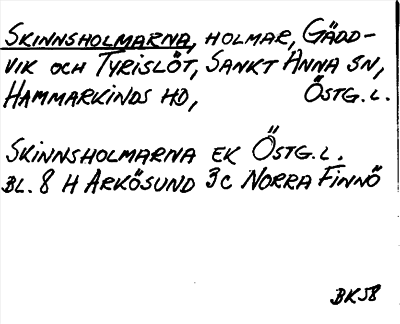 SKINNSHOLMARNA, HOLMAR, GÄDD-
VIK OCH TYRISLÖT, SANKT ANNA SN,
HAMMARKINDS HD, ÖSTG.L.
SKINNSHOLMARNA EK ÖSTG.L.
BL. 8 H ARKÖSUND 3c NORRA FINNÖ
BK58